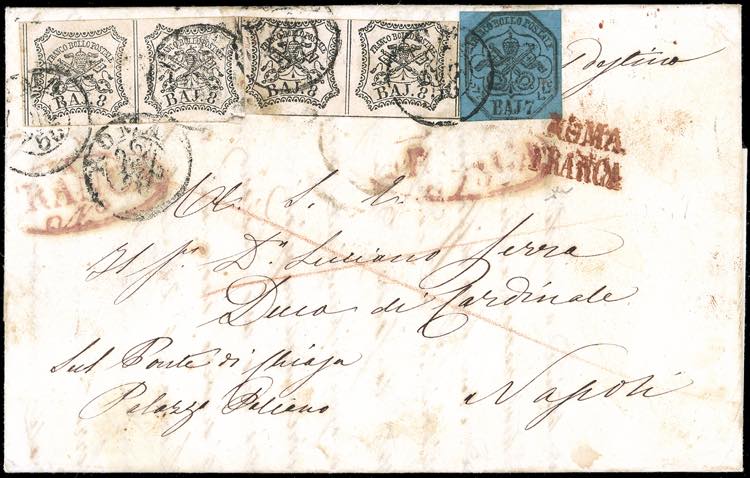 FRANCO BOLLO POSTALE FRANCO BOLLO POSTALE FRANCO BOLLO POSTALE FRANCO BOLLO POSTALE FRANCO BOLLO POSTALE
BAJ. 8 BAJ. 8 BAJ. 8 BAJ. 8 BAJ. 7
ROMA
FRANCA
A S. E.
Il Sr. Dn. Luciano Serra
Duca di Cardinale
Sul Ponte di Chiaja
Palazzo
Napoli